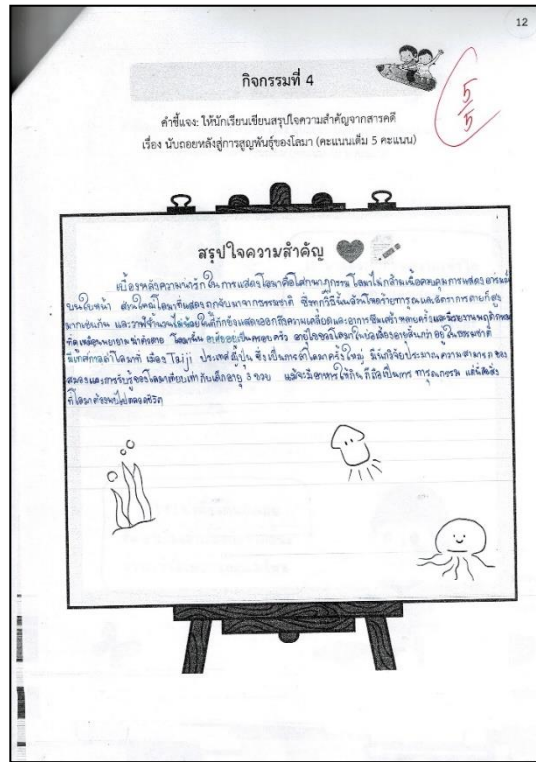 12
กิจกรรมที่ 4
5
5
คำชี้แจง: ให้นักเรียนเขียนสรุปใจความสำคัญจากสารคดี
เรื่อง นับถอยหลังสู่การสูญพันธุ์ของโลมา (คะแนนเต็ม 5 คะแนน)
สรุปใจความสำคัญ
เบื้องหลังความน่ารักในการแสดงโลมาคือโศกนาฏกรรม โลมาไม่กล้ามเนื้อควบคุมการแสดงอารมณ์
บนใบหน้า ส่วนใหญ่โลมาที่แสดงถูกจับมาจากธรรมชาติ ซึ่งทุกวิธีนั้นล้วนโหดร้ายทารุณและอัตราการตายก็สูง
มากเช่นกัน และวาฬจำนวนไม่น้อยในนี้ก็ยังแสดงออกถึงความเครียดและอาการซึมเศร้าหลายครั้งและมีรายงานพฤติกรรม
ที่ดูเหมือนพยายามฆ่าตัวตาย โลมานั้นอาศัยอยู่เป็นครอบครัว อายุไขของโลมาในบ่อเลี้ยงอายุสั้นกว่าอยู่ในธรรมชาติ
มีเทศกาลล่าโลมาที่ เมือง Taiji ประเทศญี่ปุ่น ซึ่งเป็นการล่าโลมาครั้งใหญ่ มีนักวิจัยประมาณความสามารถของ
สมองและการรับรู้ของโลมาเทียบเท่ากับเด็กอายุ 3 ขวบ แม้จะมีอาหารให้กิน ก็ถือเป็นการ ทารุณกรรม แต่นี่คือสิ่ง
ที่โลมาต้องพบไปตลอดชีวิต